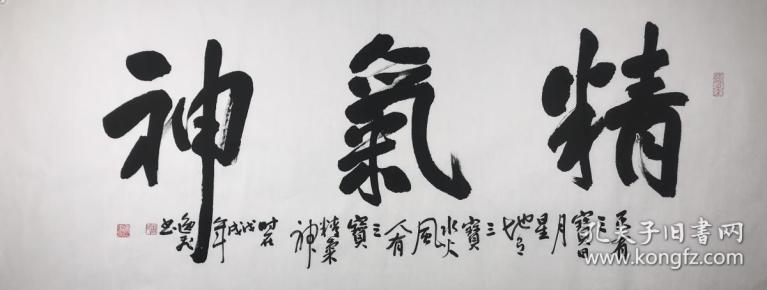 精氣神
天有三寶日月星地有三寶水火風人有三寶精氣神
时在戊戌年
书
孔夫子旧书网
www.kongfz.com